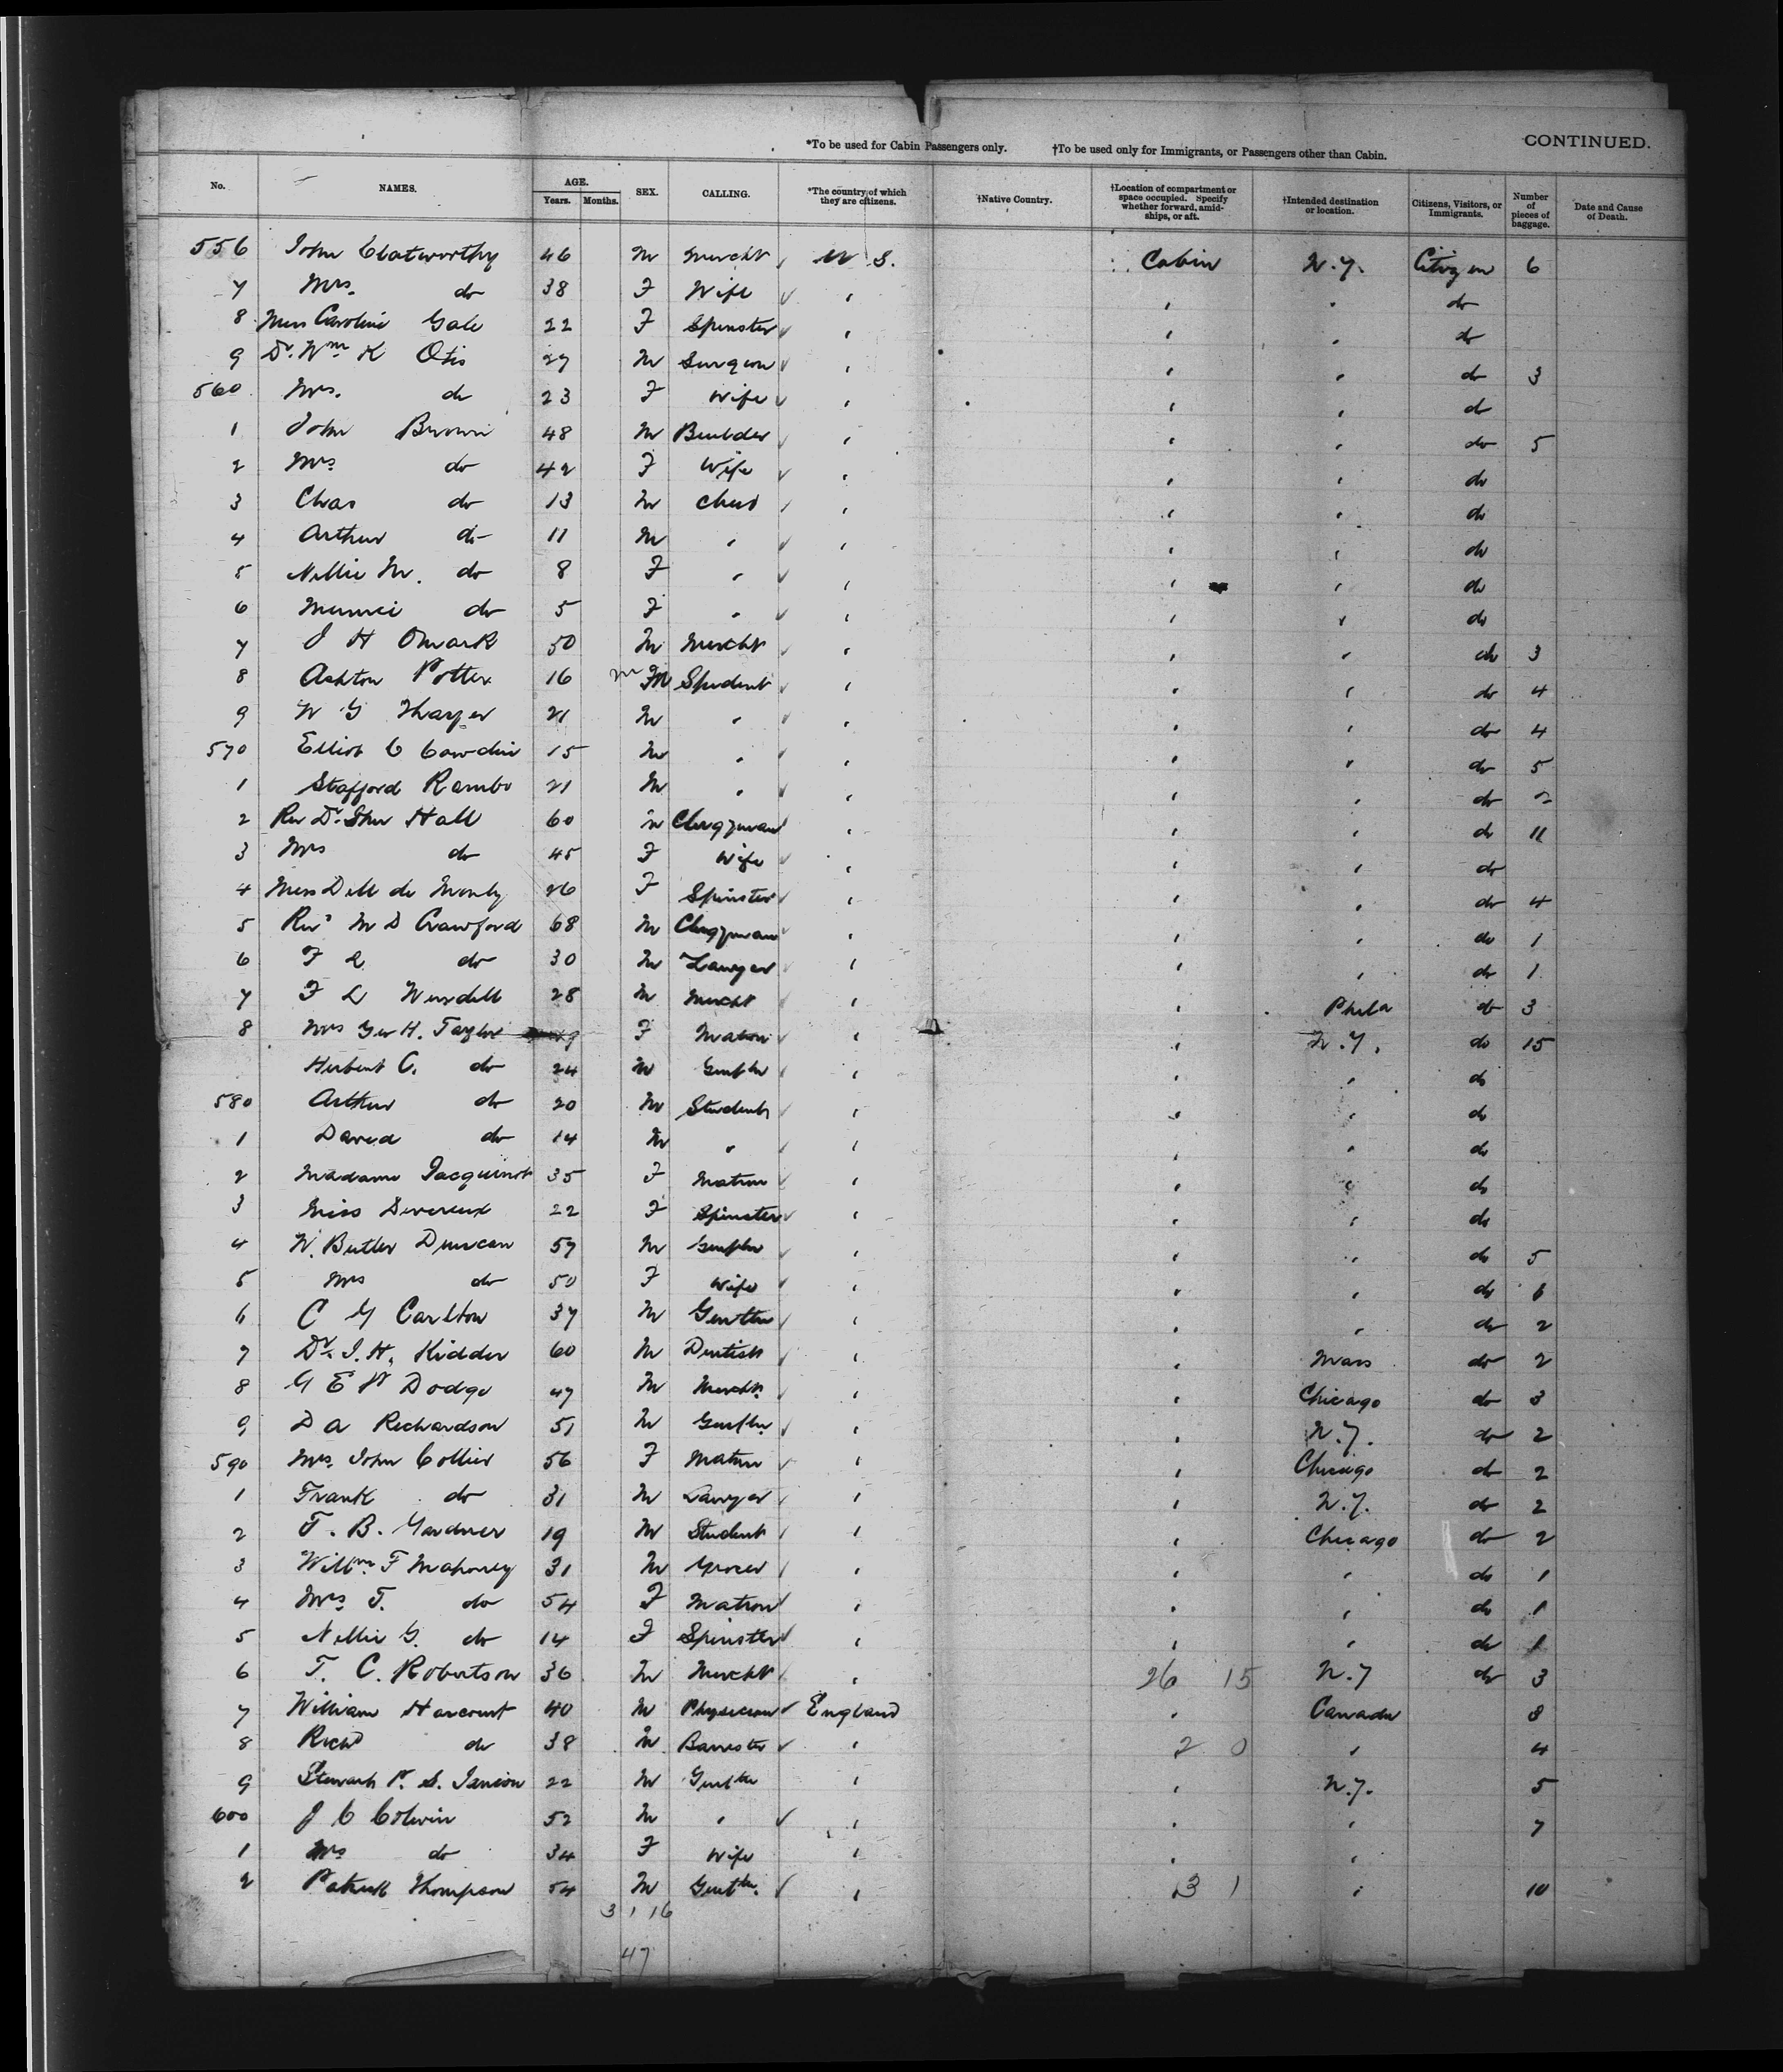 *To be used for Cabin Passengers only. †To be used only for Immigrants, or Passengers other than Cabin. CONTINUED.
No. NAMES. AGE. Years. Months. SEX. CALLING. *The country of which they are citizens. †Native Country. †Location of compartment or space occupied. Specify whether forward, amidships, or aft. †Intended destination or location. Citizens, Visitors, or Immigrants. Number of pieces of baggage. Date and Cause of Death.
556 John Clatworthy 46 M Mercht U S. Cabin N.Y. Citizen 6
7 Mrs. do 38 F Wife " " " do
8 Miss Caroline Gale 22 F Spinster " " " do
9 Dr. Wm K Otis 27 M Surgeon " " " do 3
560 Mrs. do 23 F Wife " " " do
1 John Brown 48 M Builder " " " do 5
2 Mrs do 42 F Wife " " " do
3 Chas do 13 M Child " " " do
4 Arthur do 11 M " " " " do
5 Nellie M. do 8 F " " " " do
6 do 5 F " " " " do
7 J H 50 M Mercht " " " do 3
8 Ashton Potter 16 M Student " " " do 4
9 W G Thayer 21 M " " " " do 4
570 Elliot C Cowdin 15 M " " " " do 5
1 Stafford Rambo 21 M " " " " do 2
2 Rev Dr. Hall 60 M Clergyman " " " do 11
3 Mrs do 45 F Wife " " " do
4 Miss 26 F Spinster " " " do 4
5 Revd M D Crawford 68 M Clergyman " " " do 1
6 F L do 30 M Lawyer " " " do 1
7 F L 28 M Mercht " " Phila do 3
8 Mrs Geo H. Taylor F Matron " " N.Y. do 15
Herbert C. do 24 M Gentln " " " do
580 Arthur do 20 M Student " " " do
1 David do 14 M " " " " do
2 Madame Jacquinot 35 F Matron " " " do
3 Miss Devereux 22 F Spinster " " " do
4 W. Butler Duncan 57 M Gentln " " " do 5
5 Mrs do 50 F Wife " " " do 6
6 C G Carlton 37 M Gentln " " " do 2
7 Dr. J. H. Kidder 60 M Dentist " " Mass do 2
8 G E P Dodge 47 M Mercht. " " Chicago do 3
9 D A Richardson 51 M Gentln. " " N.Y. do 2
590 Mrs. John Collier 56 F Matron " " Chicago do 2
1 Frank do 31 M Lawyer " " N.Y. do 2
2 T. B. Gardner 19 M Student " " Chicago do 2
3 Willm. F Mahoney 31 M Grocer " " " do 1
4 Mrs T. do 54 F Matron " " " do 1
5 Nellie G. do 14 F Spinster " " " do 1
6 T. C. Robertson 36 M Mercht " 26 15 N.Y do 3
7 William Harcourt 40 M Physician England " Canada 8
8 Richd do 38 M Barrister " 2 0 " 4
9 Stewart P. S. 22 M Gentln " " N.Y. 5
600 J C Colvin 52 M " " " " 7
1 Mrs do 34 F Wife " " "
2 Patrick Thompson 54 M Gentln. " 3 1 " 10
3 1 16
47